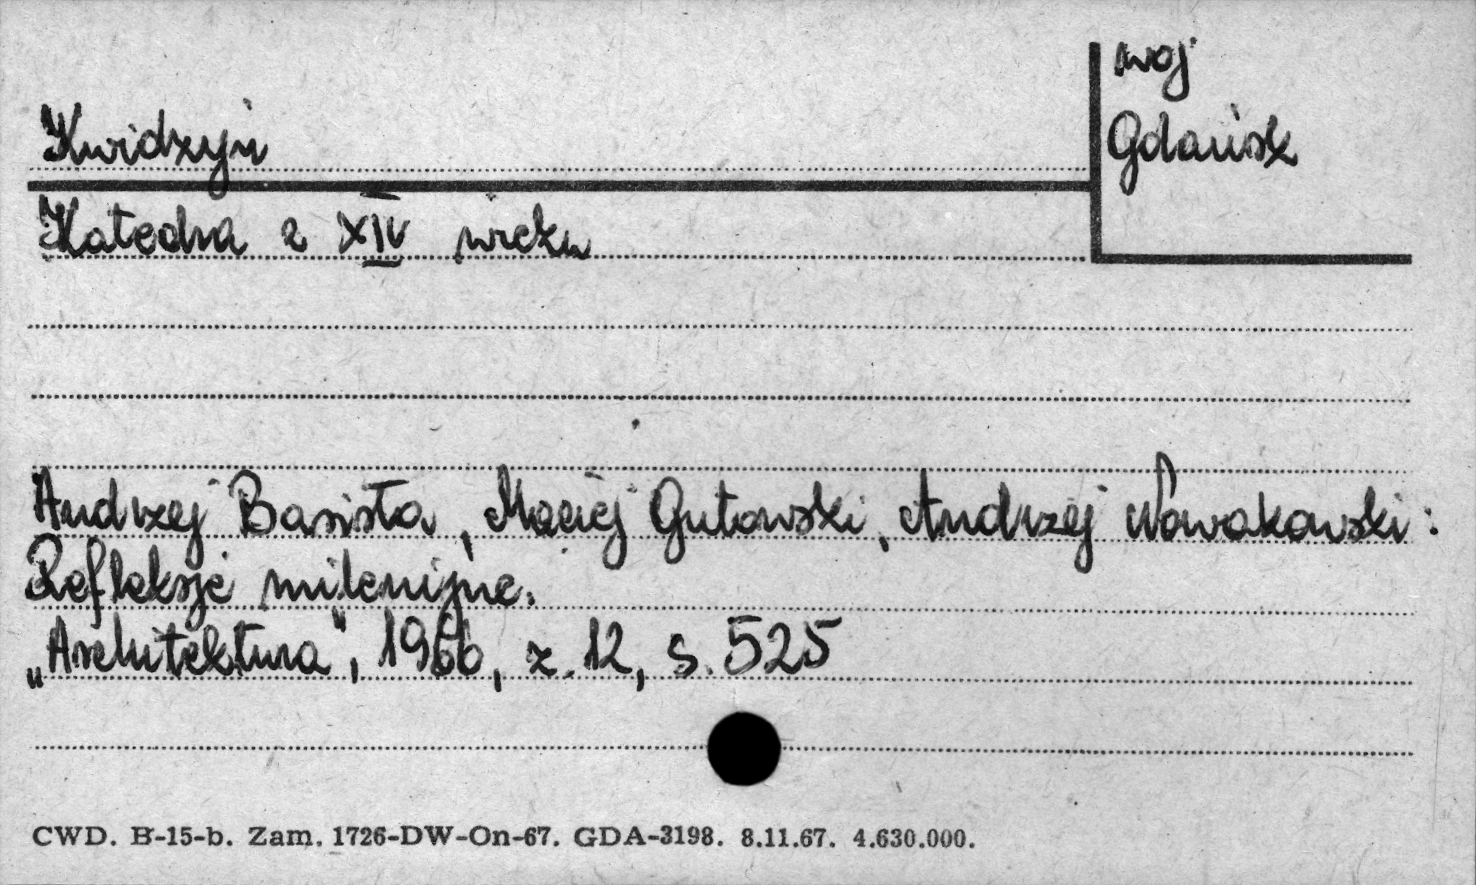 woj
Gdańsk
Kwidzyń
Katedra z XIV wieku
Andrzej Basista, Maciej Gutowski, Andrzej Nowakowski:
Refleksje milenijne.
„Architektura", 1966, z. 12, s. 525
CWD. B-15-b. Zam. 1726-DW-On-67. GDA-3198. 8.11.67. 4.630.000.